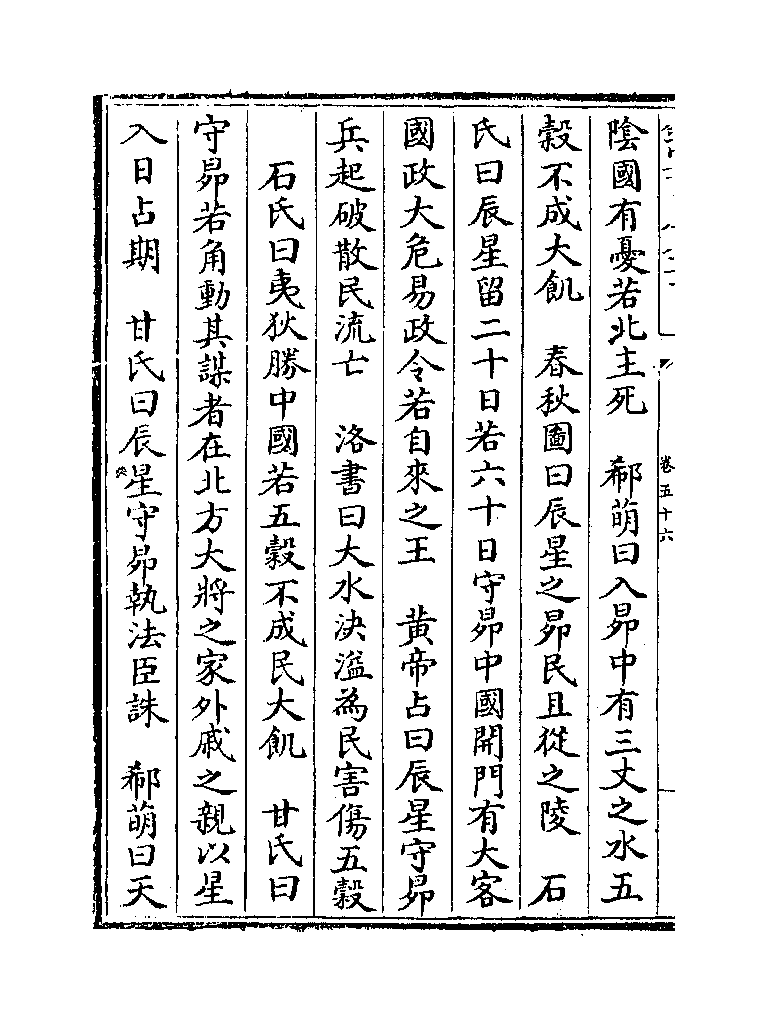 陰國有憂若北主死　郗萌曰入昴中有三丈之水五
穀不成大飢　春秋圖曰辰星之昴民且從之陵　石
氏曰辰星留二十日若六十日守昴中國開門有大客
國政大危易政令若自來之王　黃帝占曰辰星守昴
兵起破散民流亡　洛書曰大水決溢為民害傷五穀
石氏曰夷狄勝中國若五穀不成民大飢　甘氏曰
守昴若角動其謀者在北方大將之家外戚之親以星
入日占期　甘氏曰辰星守昴執法臣誅　郗萌曰天
卷五十六